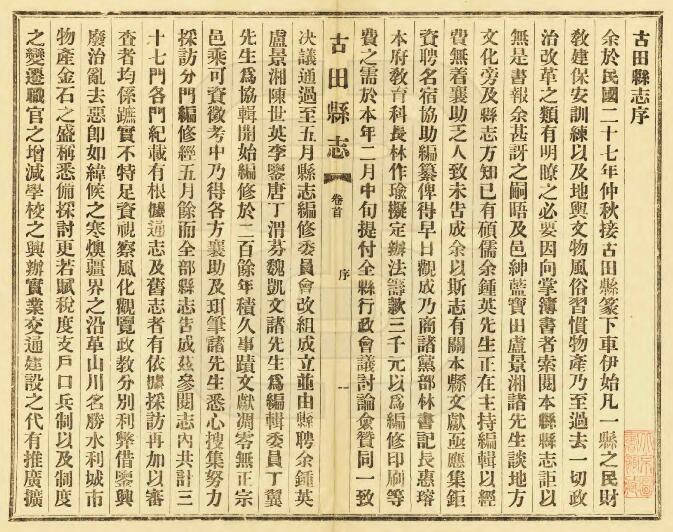 古田縣志序
余於民國二十七年仲秋接古田縣篆下車伊始凡一縣之民財
教建保安訓練以及地輿文物風俗習慣物產乃至過去一切政
治改革之類有明瞭之必要因向掌簿書者索閱本縣縣志詎以
無是書報余甚訝之嗣晤及邑紳藍寶田盧景湘諸先生談地方
文化旁及縣志方知已有碩儒余鍾英先生正在主持編輯以經
費無着襄助乏人致未告成余以斯志有關本縣文獻亟應集鉅
資聘名宿協助編纂俾得早日觀成乃商諸黨部林書記長惠瑢
本府教育科長林作瑜擬定辦法籌款三千元以爲編修印刷等
費之需於本年二月中旬提付全縣行政會議討論僉贊同一致
古田縣志
卷首
序
一
决議通過至五月縣志編修委員會改組成立並由縣聘余鍾英
盧景湘陳世英李鑒唐丁渭芬魏凱文諸先生爲編輯委員丁翼
先生爲協輯開始編修於二百餘年積久事蹟文獻凋零無正宗
邑乘可資徵考中乃得各方襄助及珥筆諸先生悉心搜集努力
採訪分門編修經五月餘而全部縣志告成茲參閱志內共計三
十七門各門紀載有根據通志及舊志者有依據採訪再加以審
查者均係躋實不特足資視察風化觀覽政教分別利弊借鑒興
廢治亂去惡卽如緯候之寒燠疆界之沿革山川名勝水利城市
物產金石之盛稱悉備採討更若賦稅度支戶口兵制以及制度
之變遷職官之增減學校之興辦實業交通建設之代有推廣擴